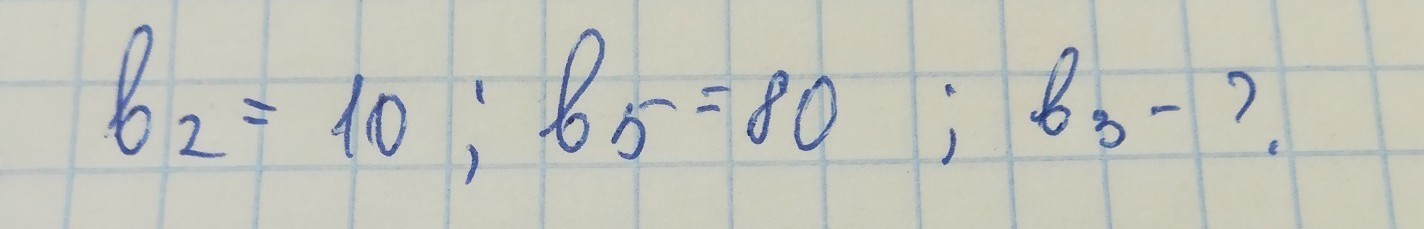 b₂ = 10 ; b₅ = 80 ; b₃ - ?.